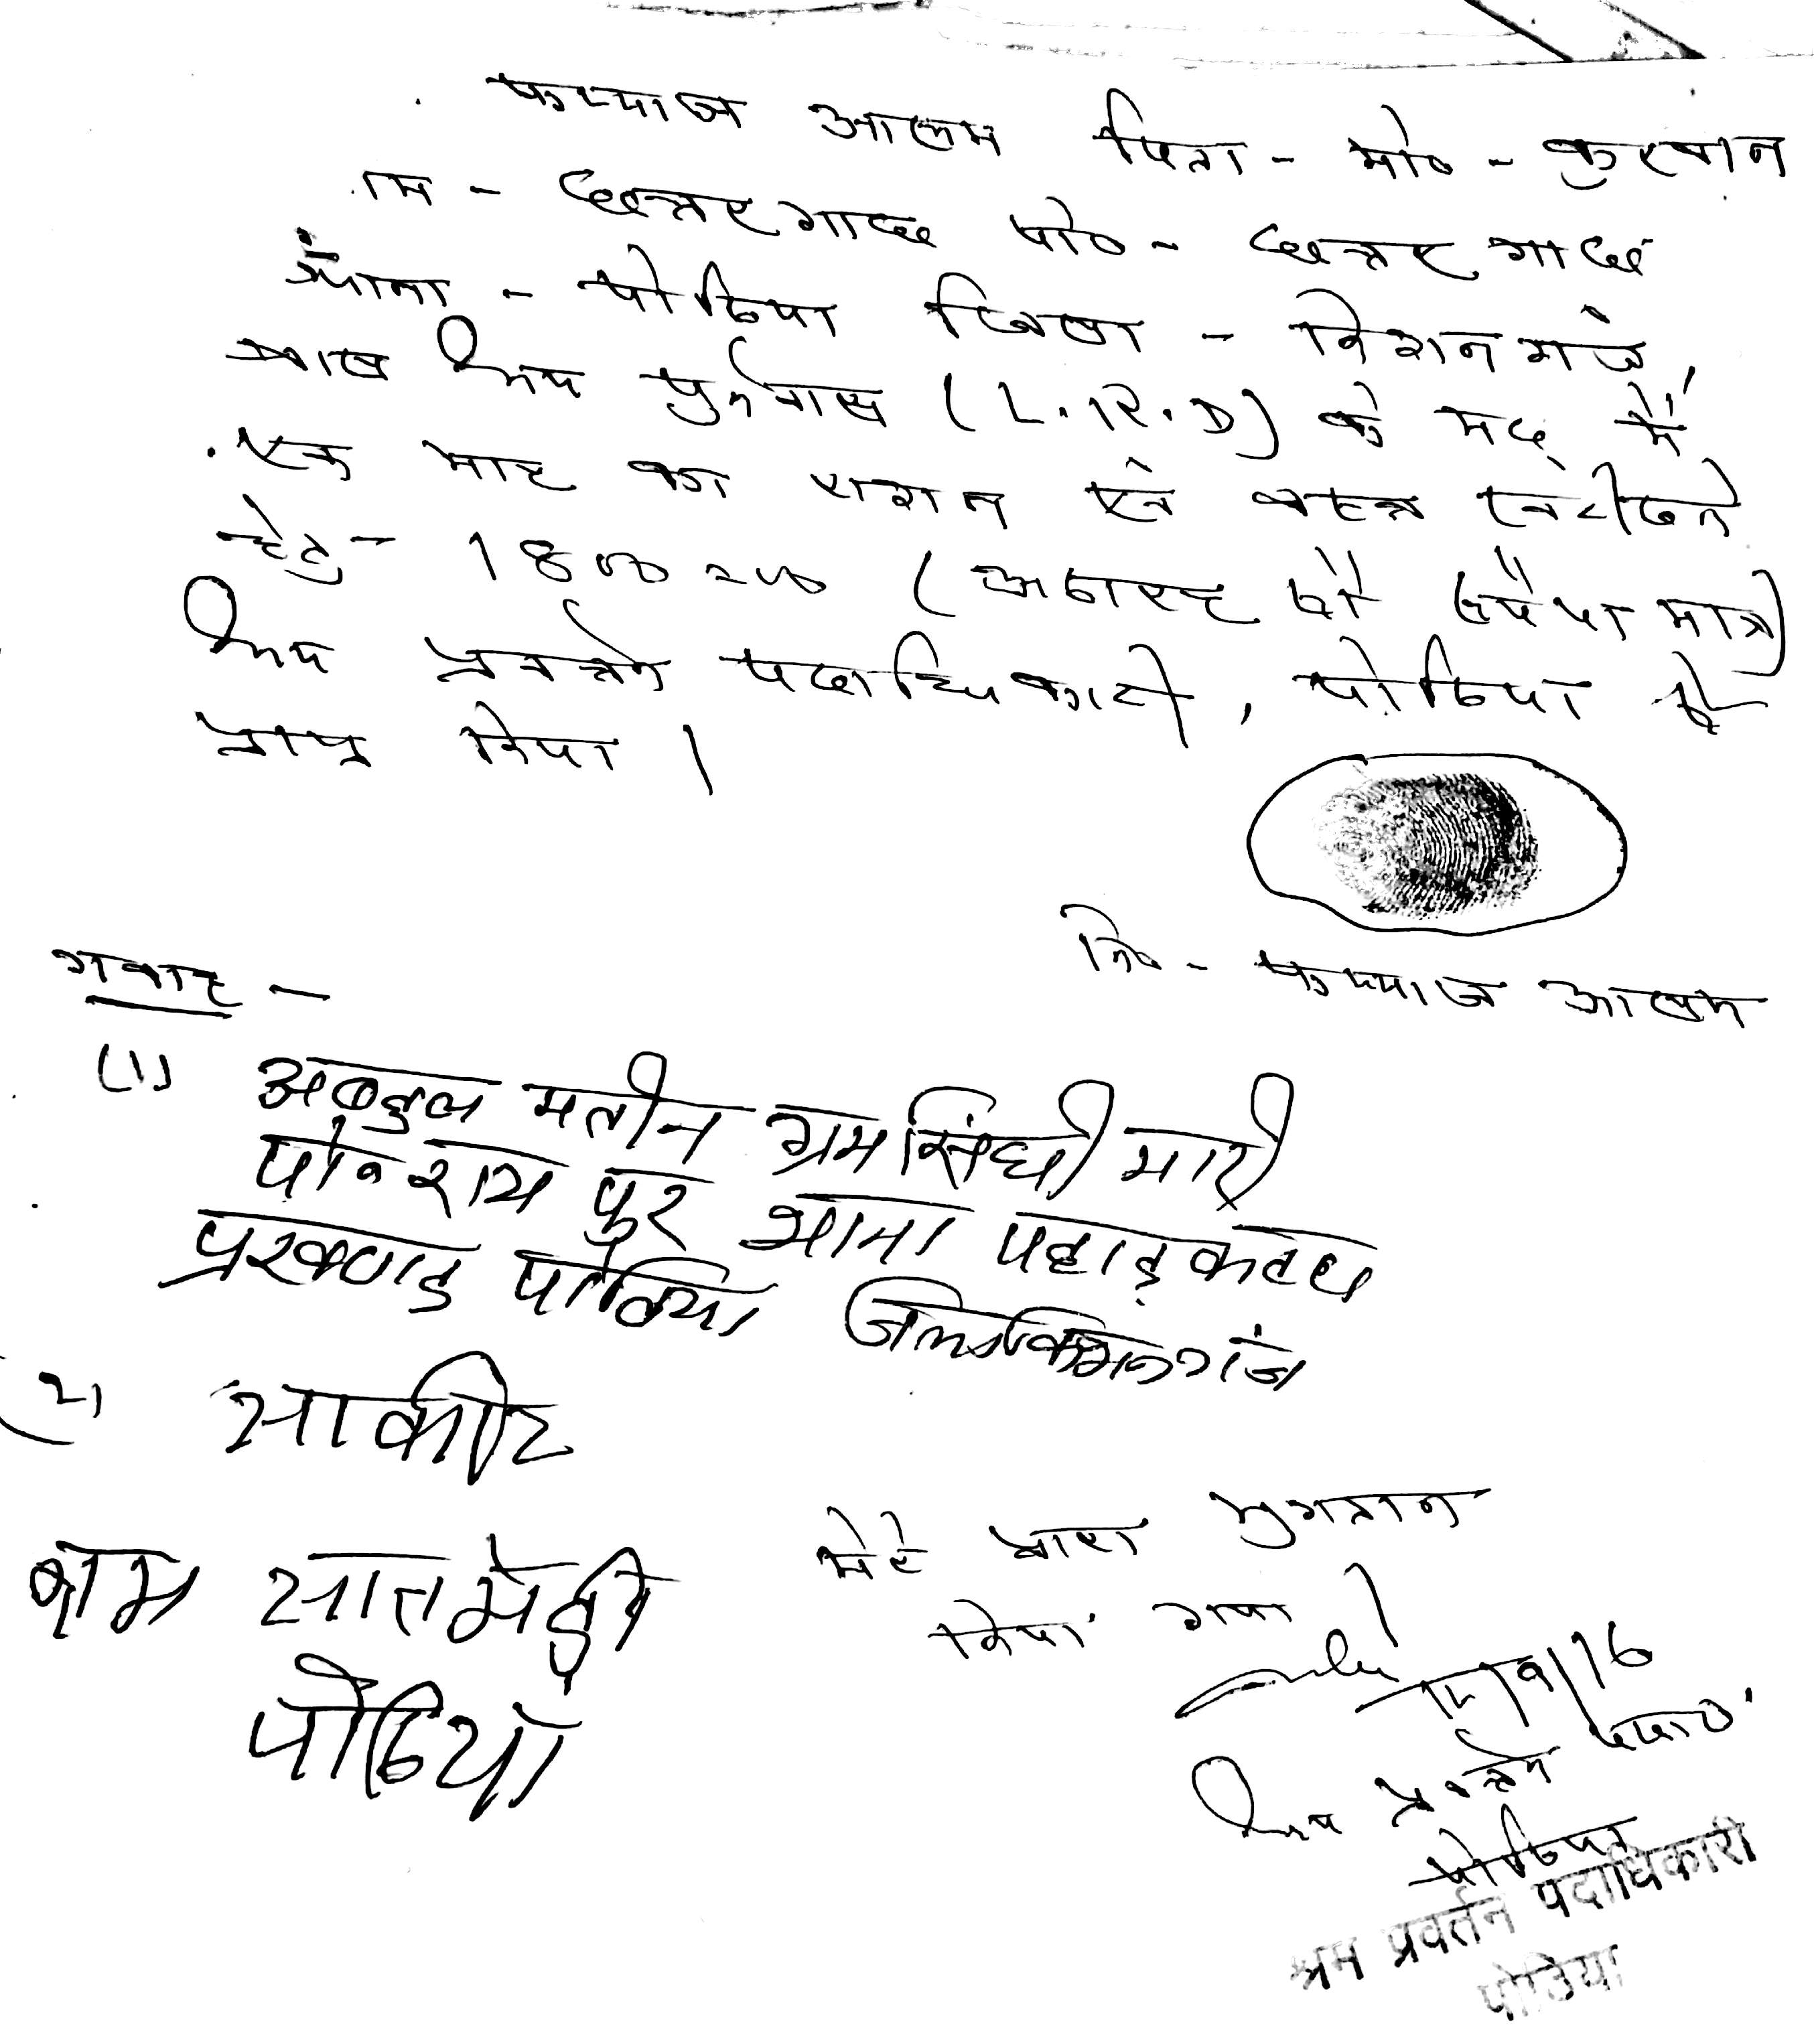 फय्याज आलम पिता - मो० - कुरबान
ाम - छत्तरगाछ पो० - छत्तरगाछ
थाना - पोठिया जिला - किशनगंज,
बाल श्रम पुर्नवास (L.R.D) के मद में
एक माह का राशन एवं वस्त्र खरीदने
हेतु - 1800 रू० (अठारह सौ रूपैया मात्र)
श्रम प्रवर्त्तन पदाधिकारी, पोठिया से
प्राप्त किया।
नि० - फय्याज आलम
गवाह -
(1) अबदुल मतीन ग्राम सिंघीमारी
पो० राय पुर थाना पहाड़कटा
प्रखण्ड पोठिया जिला किशनगंज
2) साकीर
ग्राम सातमेड़ी
पोठिया
मेरे द्वारा भुगतान
किया गया।
9/16
श्रम प्रवर्त्तन पदा०
पोठिया
श्रम प्रवर्तन पदाधिकारी
पोठिया